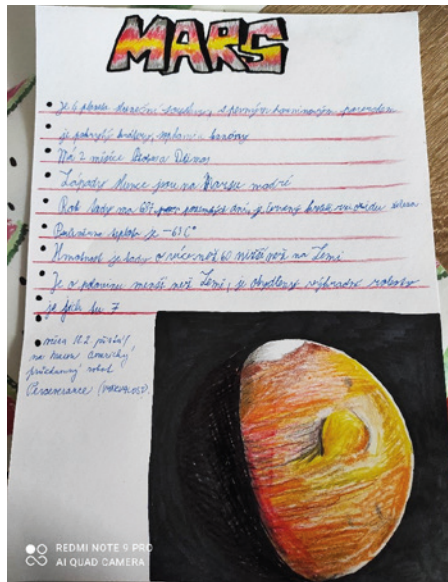 MARS
Je planeta sluneční soustavy, s pevným povrchem
je pokrytý krátery, kaňony
Má 2 měsíce Phobos a Deimos
Západy slunce jsou na Marsu modré
Rok tady má 687 pozemských dní, je červený kvůli
Průměrná teplota je -63 C°
Hmotnost je tady o více než 60 nižší než na Zemi
Je o polovinu menší než Země, je obydlený výhradně roboty
je jich tu 7
18.2. přistál
na Marsu americký
průzkumný robot
Perseverance (VYTRVALOST).
REDMI NOTE 9 PRO
AI QUAD CAMERA